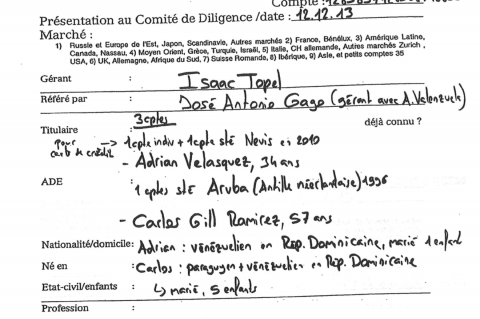 Compte :
Présentation au Comité de Diligence /date : 12.12.13
Marché :
1) Russie et Europe de l'Est, Japon, Scandinavie, Autres marchés 2) France, Bénélux, 3) Amérique Latine,
Canada, Nassau, 4) Moyen Orient, Grèce, Turquie, Israël, 5) Italie, CH allemande, Autres marchés Zurich ,
USA, 6) UK, Allemagne, Afrique du Sud, 7) Suisse Romande, 8) Ibérique, 9) Asie, et petits comptes 35
Gérant : Isaac Topel
Référé par : José Antonio Gago (gérant avec A. Valenzuela)
3 cptes
Titulaire déjà connu ?
pour carte de crédit → 1 cpte indiv + 1 cpte sté Nevis en 2010
- Adrian Velasquez, 34 ans
ADE : 1 cptes sté Aruba (Antille néerlandaise) 1996
- Carlos Gill Ramirez, 57 ans
Nationalité/domicile: Adrian : vénézuelien en Rep. Dominicaine, marié 1 enfant
Né en : Carlos : paraguyen + vénézuelien en Rep. Dominicaine
Etat-civil/enfants : ↳ marié, 5 enfants
Profession :